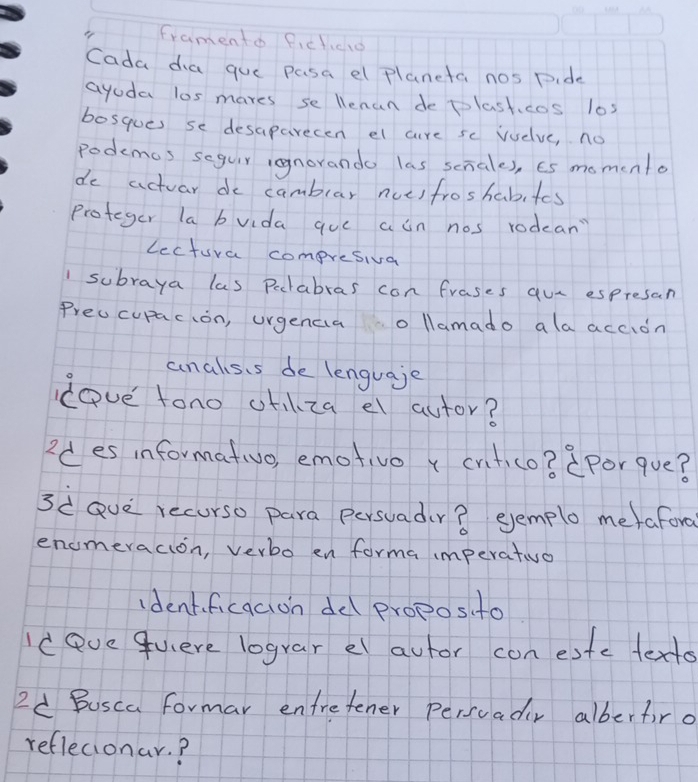 framento ficticio
"Cada dia que pasa el planeta nos pide
ayuda los mares se llenan de plasticos los
bosques se desaparecen el aire se vuelve, no
podemos seguir ignorando las señales, es momento
de actuar de cambiar nuestros habitos
proteger la b vida que aún nos rodean"
Lectura compresiva
1 subraya las Palabras con frases que espresan
Preocupación, urgencia o llamado a la acción
analisis de lenguaje
1¿Qué tono utiliza el autor?
2¿ es informativo, emotivo y critico? ¿Por que?
3¿ Qué recurso para persuadir? ejemplo metafora
enumeración, verbo en forma imperativo
identificación del proposito
1¿ Que quiere lograr el autor con este texto
2¿ Busca formar entretener persuadir albertir o
reflecionar.?